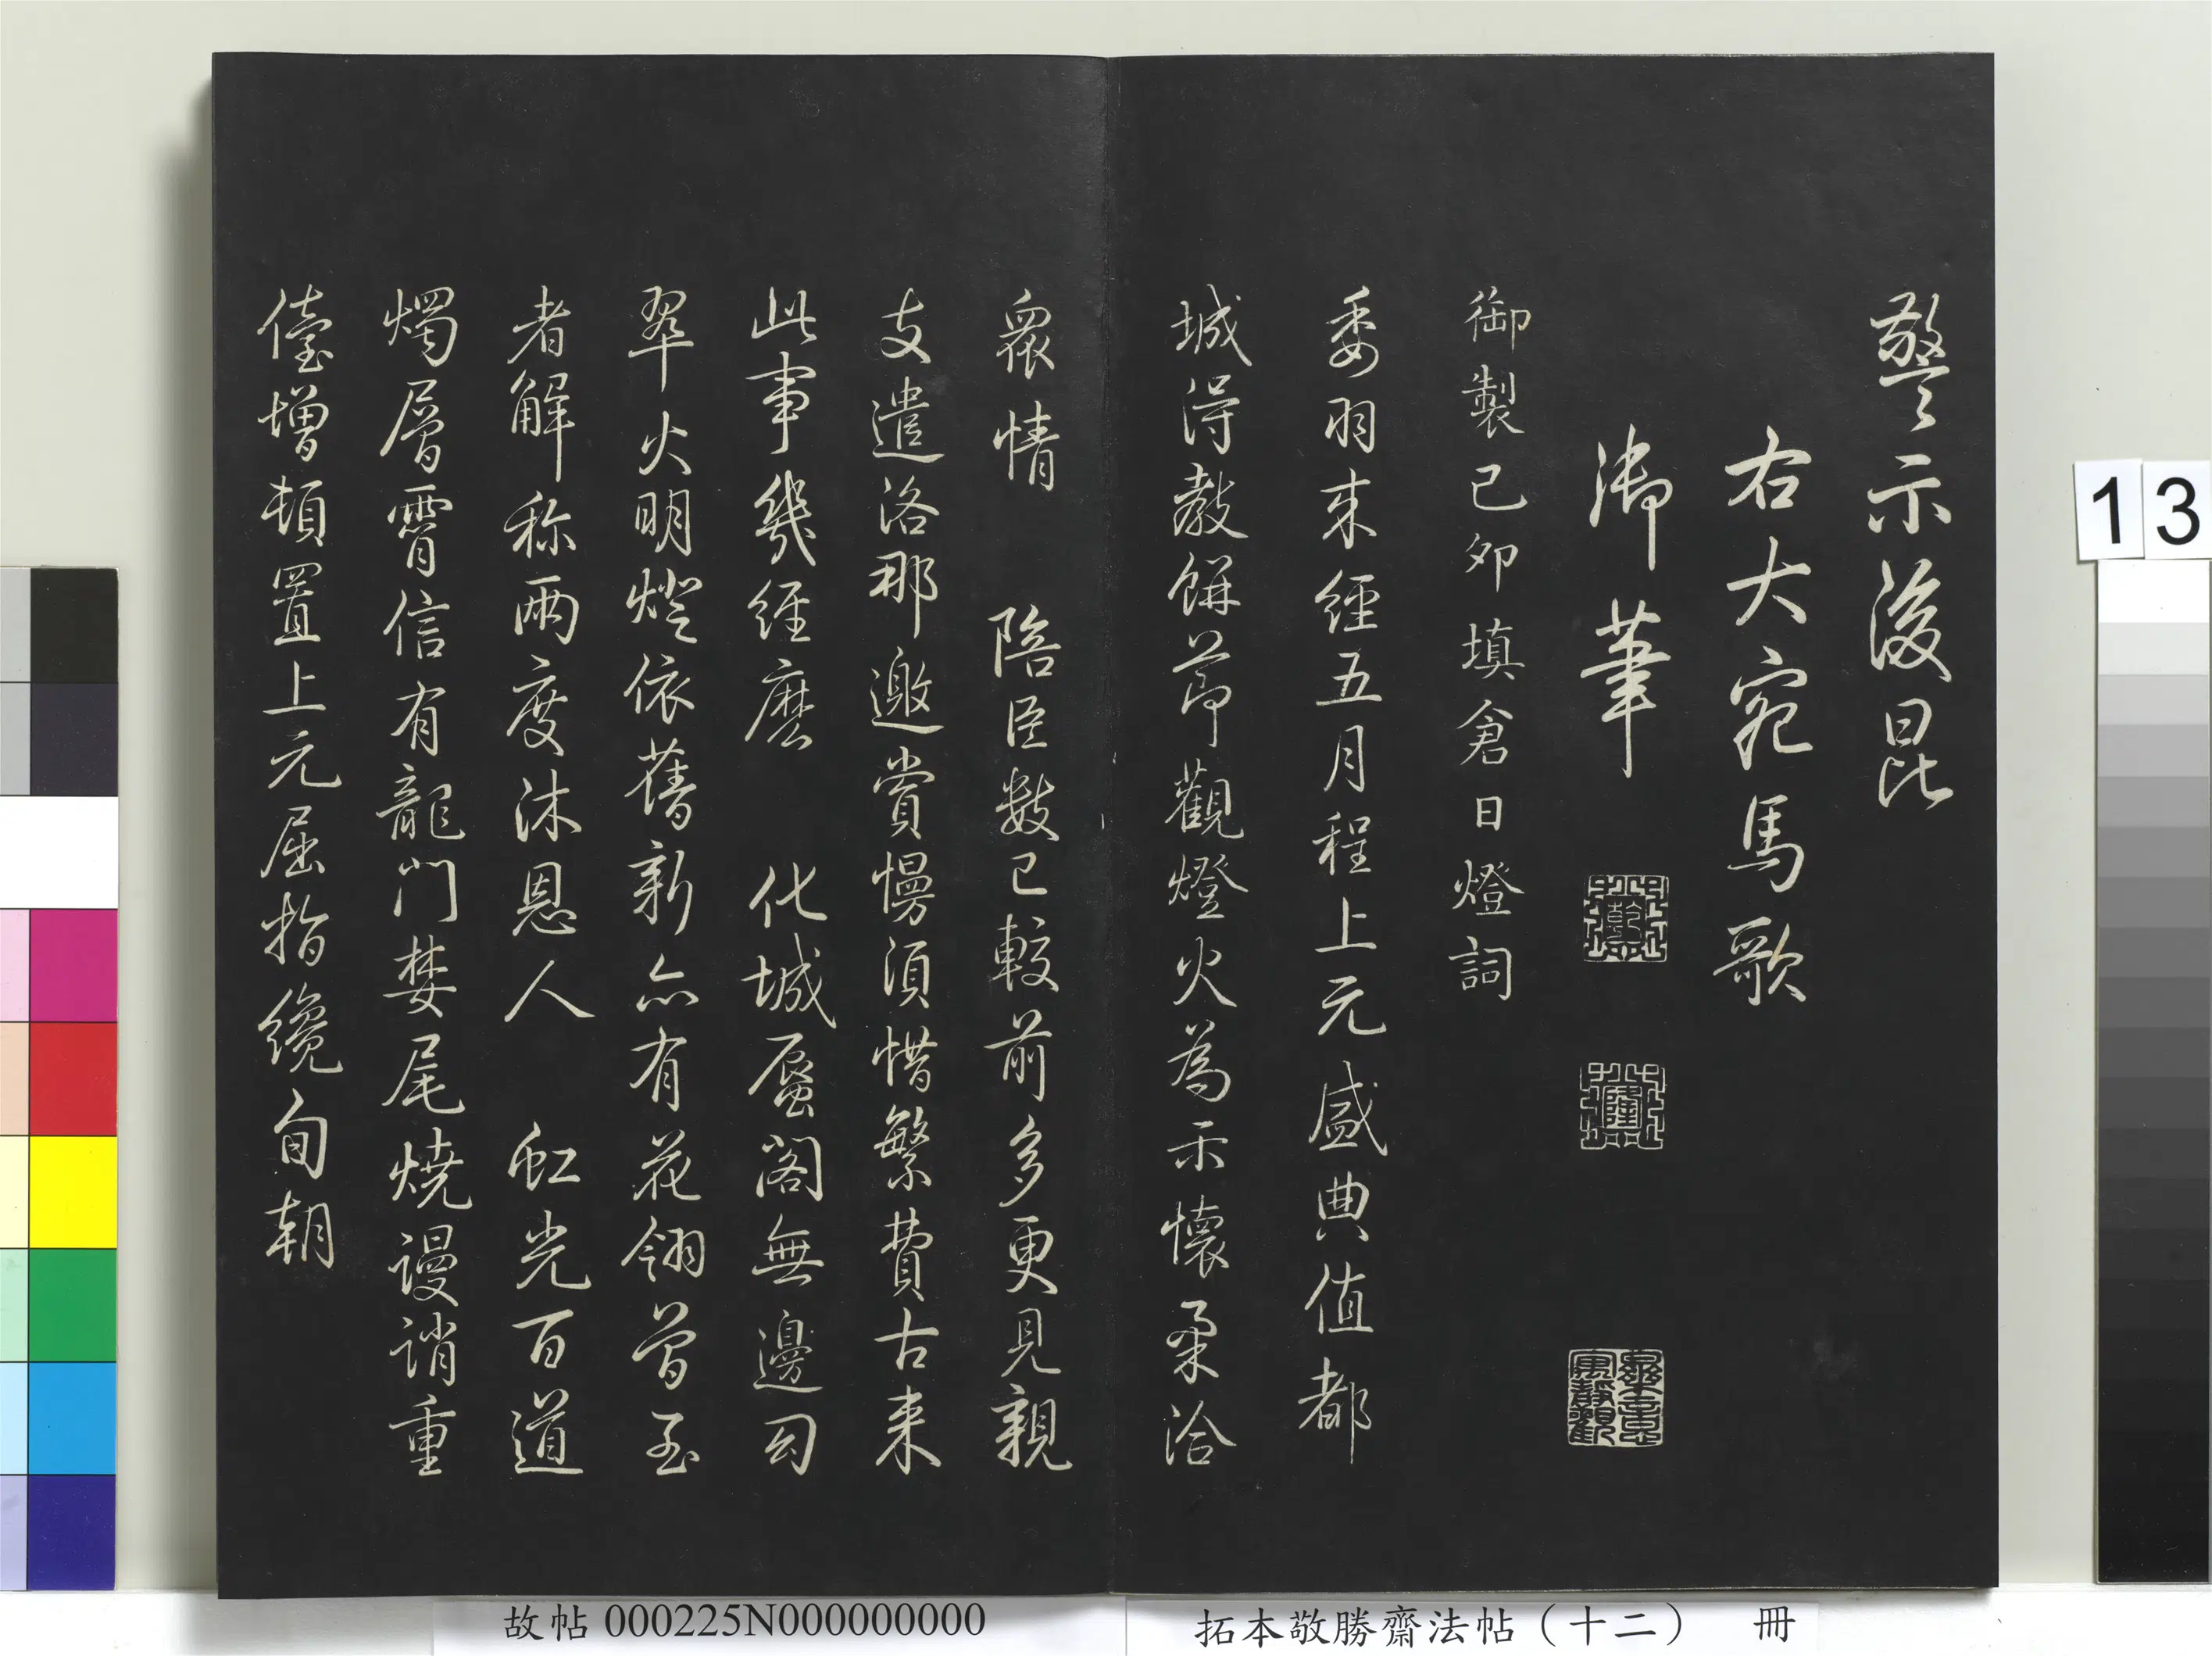 警示後昆
右大宛馬歌
御筆
御製己卯填倉日燈詞
委羽来經五月程上元盛典值都
城淂教餅節觀燈火為示懷柔洽
衆情 陪臣數已較前多更見親
支遣洛那邀賞慢須惜繁費古来
此事幾經麽 化城蜃閣無邊幻
翠火明燈依舊新亦有花翎曾至
者解称兩度沐恩人 虹光百道
燭層霄信有龍門婪尾燒謾誚重
儓增頓置上元屈指纔旬朝
13
故帖 000225N000000000
拓本敬勝齋法帖（十二） 冊